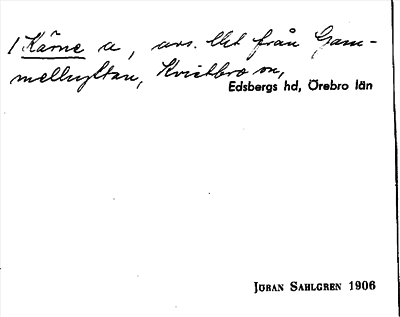 / Kärne a, avs. det från Gam-
melhyttan, Kvistbro sn,
Edsbergs hd, Örebro län
JÖRAN SAHLGREN 1906